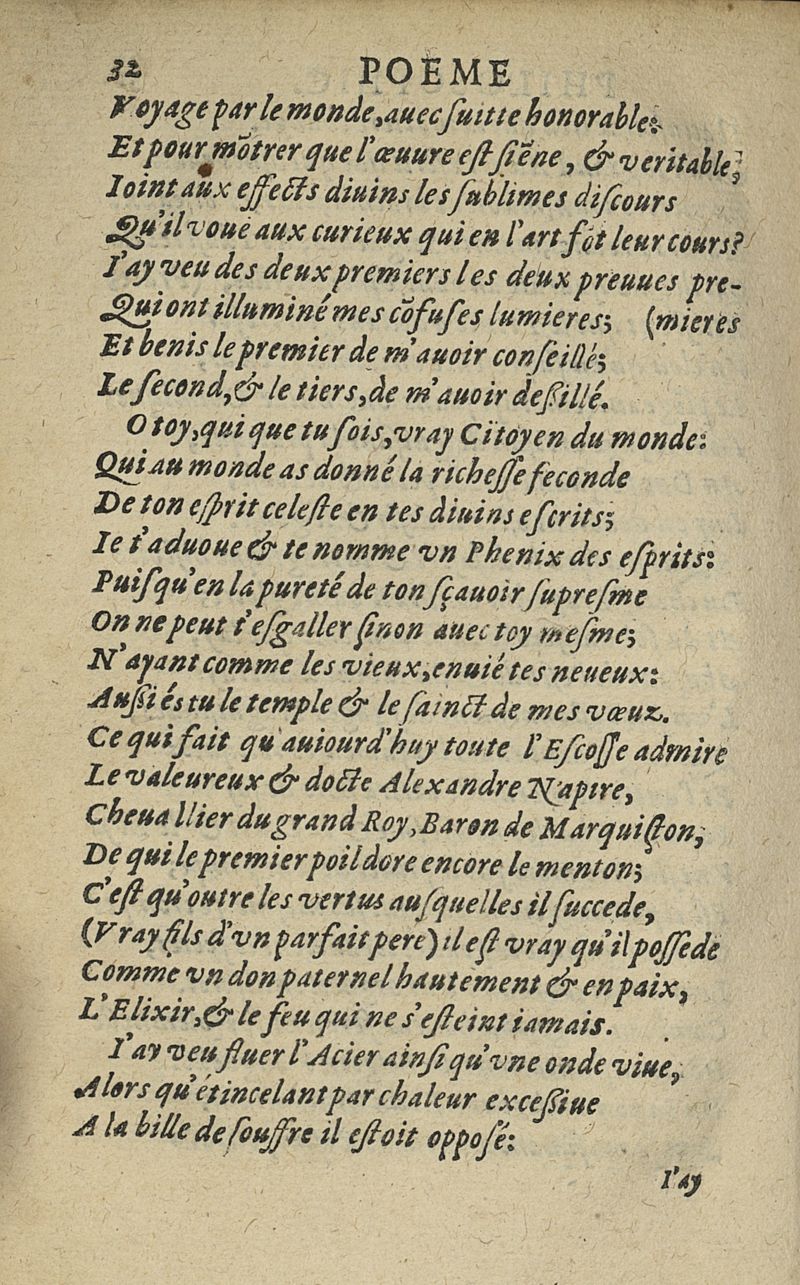 32 POËME
Voyage par le monde, auec suitte honorable:
Et pour mõtrer que l'œuure est siẽne, & veritable,
Ioint aux effects diuins les sublimes discours
Qu'il voue aux curieux qui en l'art sõt leur cours?
I'ay veu des deux premiers les deux preuues pre-
Qui ont illuminé mes cõfuses lumieres; (mieres
Et benis le premier de m'auoir conseillé;
Le second, & le tiers, de m'auoir dessillé.
O toy, qui que tu sois, vray Citoyen du monde:
Qui au monde as donné la richesse feconde
De ton esprit celeste en tes diuins escrits;
Ie t'aduoue & te nomme vn Phenix des esprits:
Puisqu'en la pureté de ton sçauoir supresme
On ne peut t'esgaller sinon auec toy mesme;
N'ayant comme les vieux, enuié tes neueux:
Aussi és tu le temple & le sainct de mes vœuz.
Ce qui fait qu'auiourd'huy toute l'Escosse admire
Le valeureux & docte Alexandre Napire,
Cheuallier du grand Roy, Baron de Marquiston,
De qui le premier poil dore encore le menton;
C'est qu'outre les vertus ausquelles il succede,
(Vray fils d'vn parfait pere) il est vray qu'il possede
Comme vn don paternel hautement & en paix,
L'Elixir, & le feu qui ne s'esteint iamais.
I'ay veu fluer l'Acier ainsi qu'vne onde viue,
Alors qu'étincelant par chaleur excessiue
A la bille de souffre il estoit opposé:
I'ay